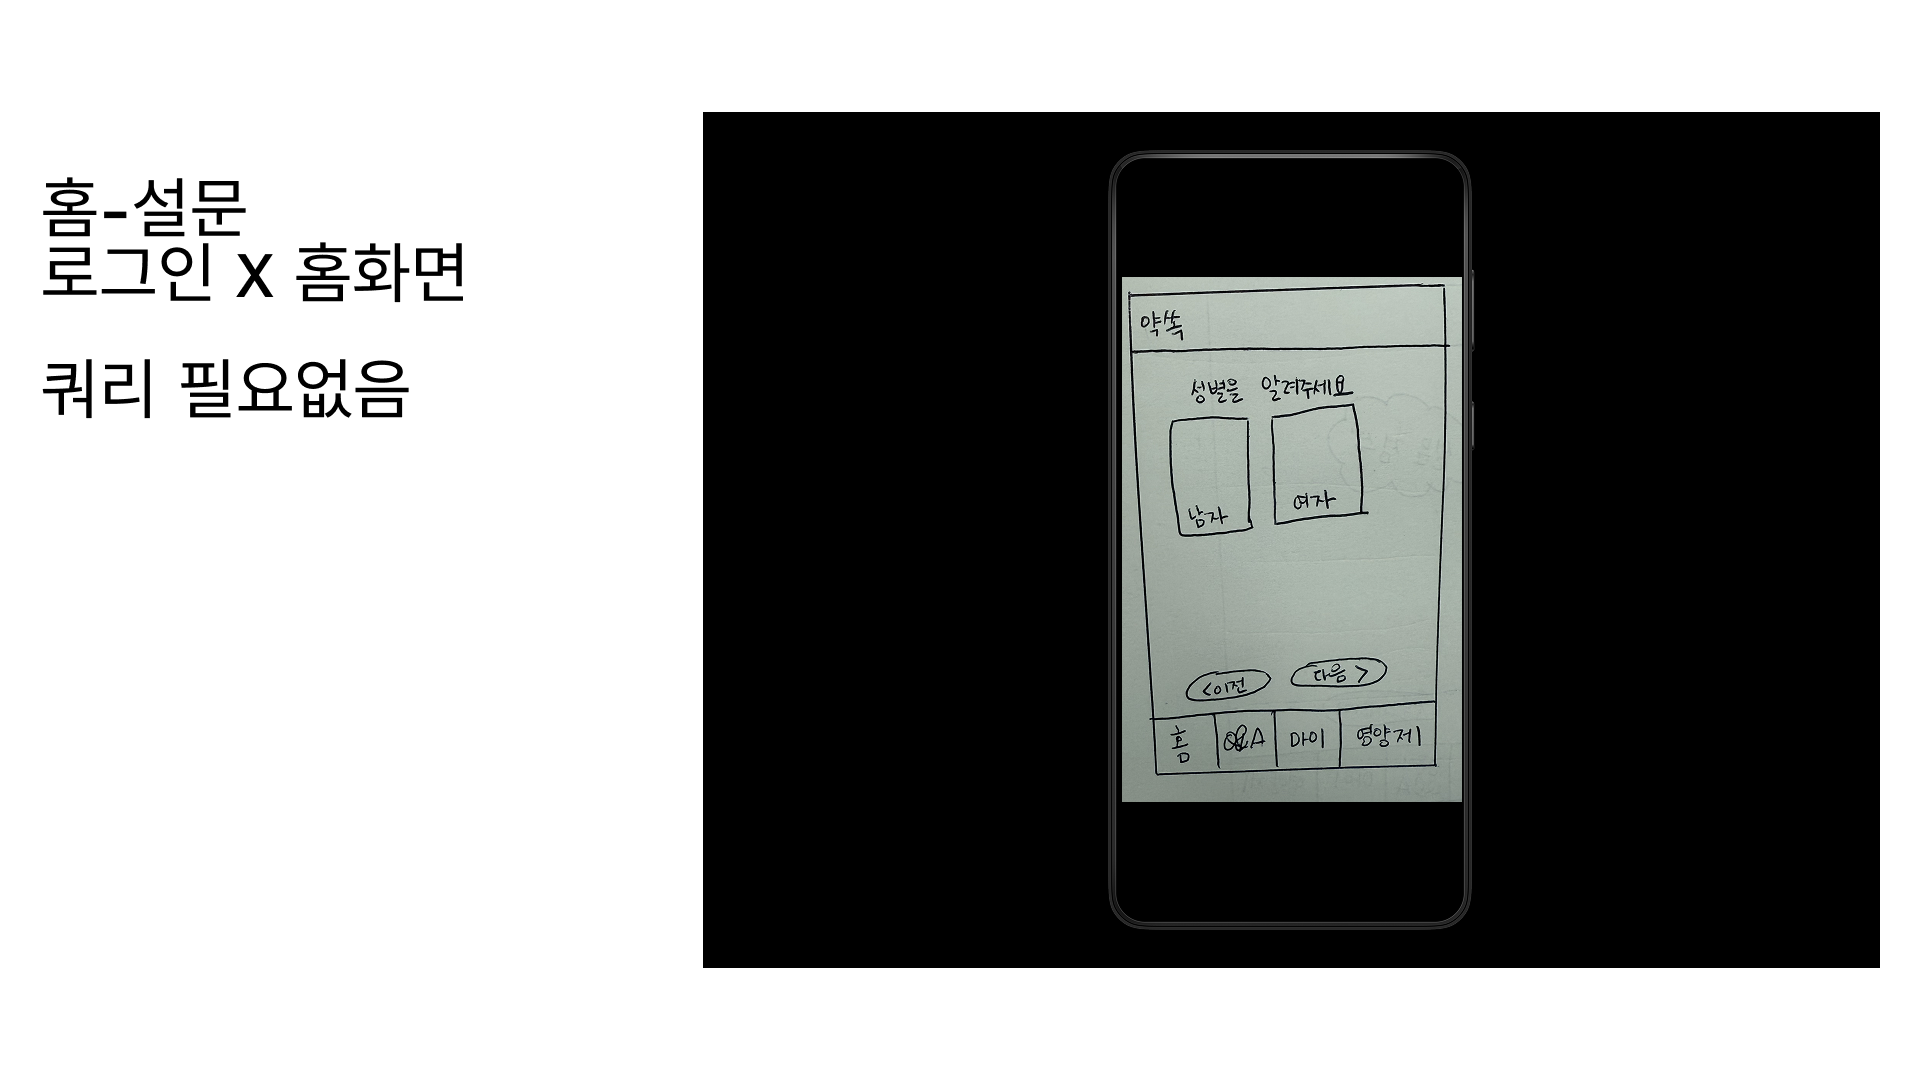 홈-설문
로그인 x 홈화면
쿼리 필요없음
약쏙
성별을 알려주세요
남자 여자
<이전 다음>
홈 Q&A 마이 영양제